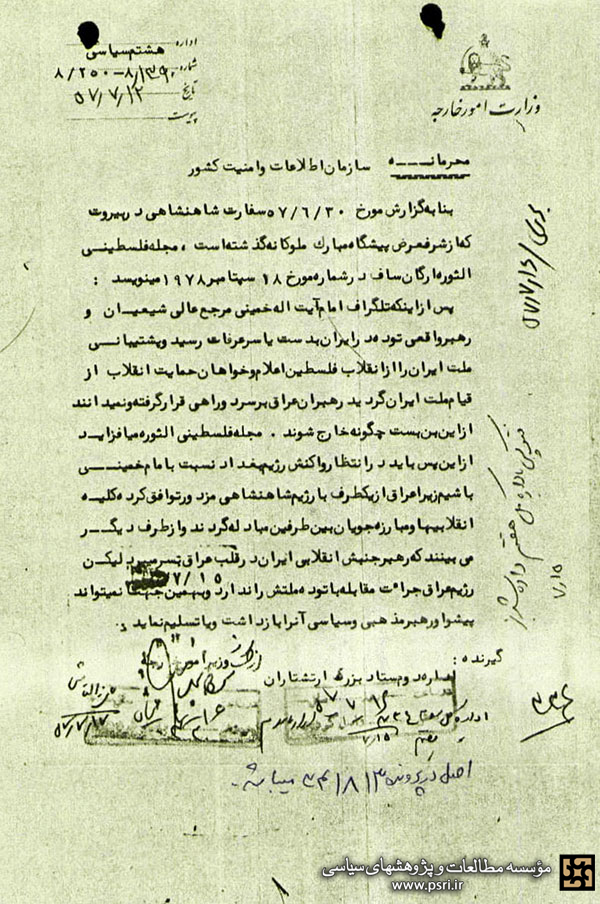 وزارت امور خارجه
اداره هشتم سیاسی
شماره ۸/۲۵۰-۸/۱۳۹۰
تاریخ ۵۷/۷/۱۲
پیوست
محرمانـــه سازمان اطلاعات و امنیت کشور
بنا به گزارش مورخ ۵۷/۶/۳۰ سفارت شاهنشاهی در بیروت
که از شرف عرض پیشگاه مبارک ملوکانه گذشته است ، مجله فلسطینی
الثوره ارگان ساف در شماره مورخ ۱۸ سپتامبر ۱۹۷۸ مینویسد :
پس از اینکه تلگراف امام آیت اله خمینی مرجع عالی شیعیـان و
رهبر واقعی توده در ایران بدست یاسر عرفات رسید و پشتیبانـی
ملت ایران را از انقلاب فلسطین اعلام و خواهان حمایت انقلاب از
قیام ملت ایران گردید رهبران عراق بر سر دو راهی قرار گرفته و نمیدانند
از این بن بست چگونه خارج شوند . مجله فلسطینی الثوره میافزاید
از این پس باید در انتظار واکنش رژیم بغداد نسبت با مام خمینـی
باشیم زیرا عراق از یکطرف با رژیم شاهنشاهی مزدور توافق کرده کلیه
انقلابیها و مبارزه جویان بین طرفین مبادله گردند و از طرف دیگـر
می بینند که رهبر جنبش انقلابی ایران در قلب عراق بسر میبرد لیکن
رژیم عراق جرائت مقابله با توده ملتش را ندارد و بهمین جهت نمیتواند
پیشوا و رهبر مذهبی و سیاسی آنرا بازداشت و یا تسلیم نماید .
از طرف وزیر امور خارجه
گیرنده :
اداره دوم ستاد بزرگ ارتشتاران
۷/۱۵
۵۷/۷/۱۷
اصل در پرونده میباشد.
مؤسسه مطالعات و پژوهشهای سیاسی
www.psri.ir